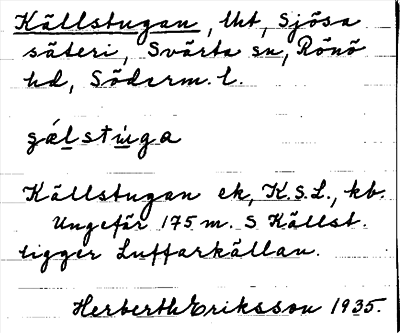 Källstugan, lht, Sjösa
säteri, Svärta sn, Rönö
hd, Söderm. l.
gǽlstu̇ga
Källstugan ek, K.S.L., kb.
Ungefär 175 m. S Källst.
ligger Luffarkällan.
Herberth Eriksson 1935.